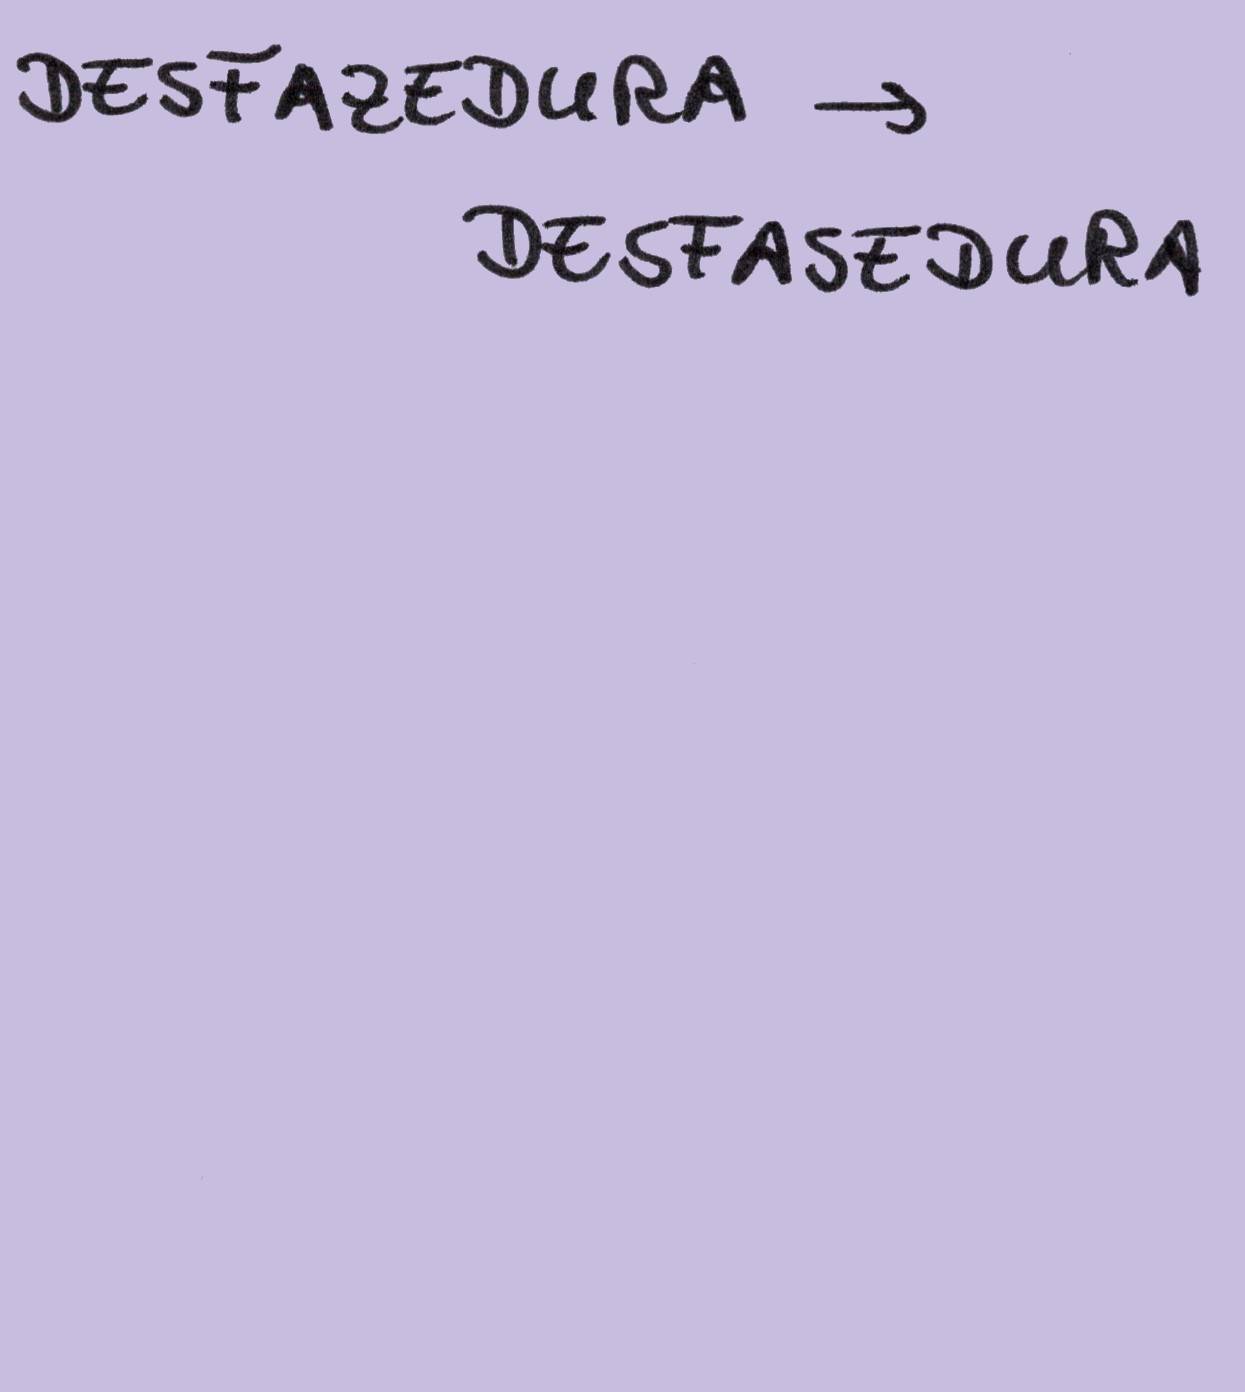 DESFAZEDURA →
DESFASEDURA